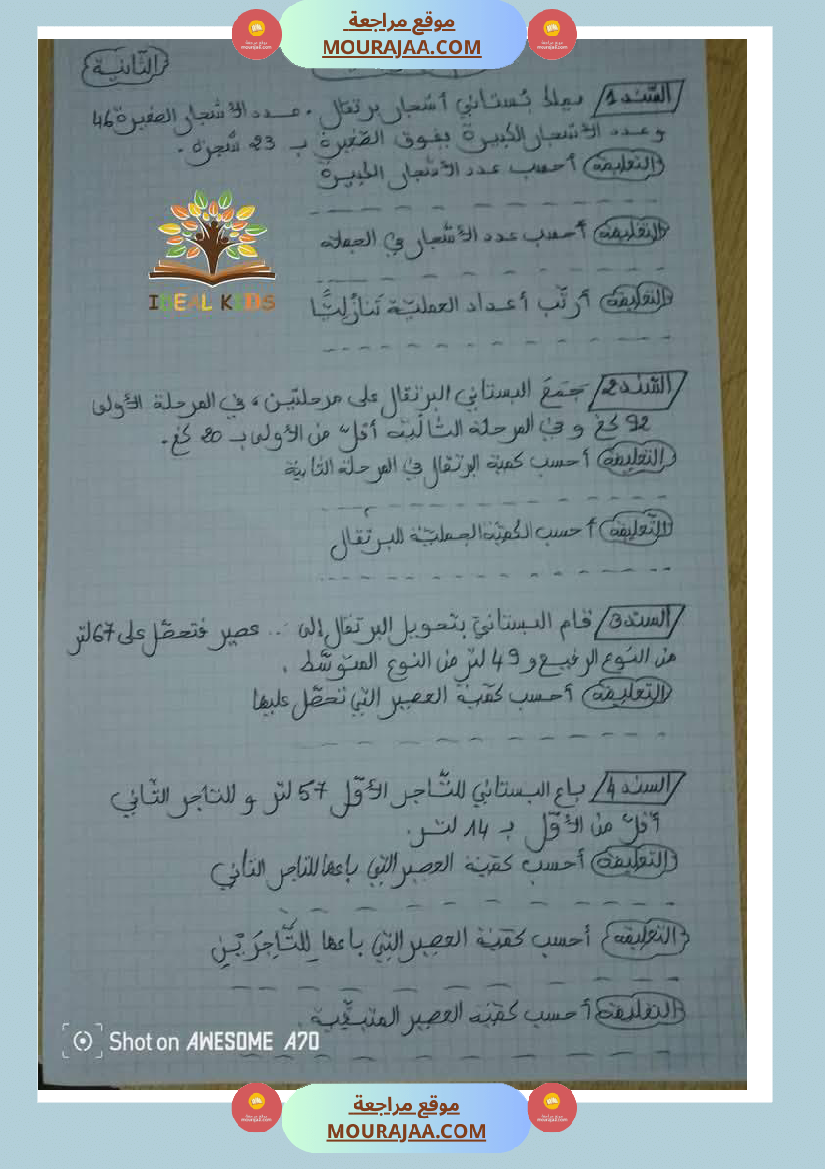 موقع مراجعة
MOURAJAA.COM
الثانية
السند 1 يملك بستاني أشجار برتقال . عدد الأشجار الصغيرة 46
وعدد الأشجار الكبيرة يفوق الصّغيرة بـ 23 شجرة .
التعليمة أحسب عدد الأشجار الكبيرة
التعليمة أحسب عدد الأشجار في الجملة
IDEAL KIDS
التعليمة أرتّب أعداد العمليّة تنازليًّا
السّند 2 جمع البستاني البرتقال على مرحلتين ، في المرحلة الأولى
92 كغ و في المرحلة الثانية أقلّ من الأولى بـ 20 كغ .
التعليمة أحسب كمية البرتقال في المرحلة الثانية
التّعليمة أحسب الكميّة الجمليّة للبرتقال
السند 3 قام البستاني بتحويل البرتقال إلى .. عصير فتحصّل على 67 لتر
من النّوع الرفيع و 49 لتر من النوع المتوسّط .
التعليمة أحسب كميّة العصير التي تحصّل عليها
السند 4 باع البستاني للتّاجر الأوّل 57 لتر و للتاجر الثّاني
أقلّ من الأوّل بـ 14 لتر .
التعليمة أحسب كميّة العصير التي باعها للتاجر الثاني
التعليمة أحسب كميّة العصير التي باعها لِلتَّاجِرَيْنِ
التعليمة أحسب كميّة العصير المتبقّية .
Shot on AWESOME A70
موقع مراجعة
MOURAJAA.COM